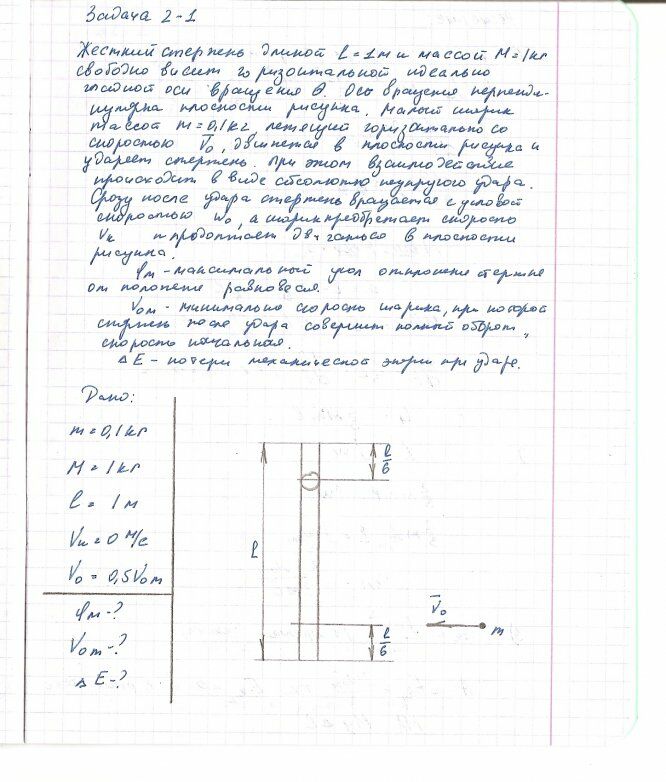 Задача 2-1
Жесткий стержень длиной l = 1м и массой M = 1кг
свободно висит горизонтальной идеально
гладкой оси вращения θ. Ось вращения перпенди-
кулярна плоскости рисунка. Малый шарик
массой m = 0,1кг летящий горизонтально со
скоростью V̅₀, движется в плоскости рисунка и
ударяет стержень. При этом взаимодействие
происходит в виде абсолютно неупругого удара.
Сразу после удара стержень вращается с угловой
скоростью ω₀, а шарик приобретает скорость
Vк и продолжает двигаться в плоскости
рисунка.
φм - максимальный угол отклонения стержня
от положения равновесия.
V₀м - минимальная скорость шарика, при которой
стержень после удара совершит полный оборот,,
скорость начальная.
ΔE - потери механической энергии при ударе.
Дано:
m = 0,1кг
M = 1кг
l = 1м
Vк = 0 м/с
V₀ = 0,5V₀м
φм - ?
V₀м - ?
ΔE - ?
l/6
l
l/6
V̅₀
m